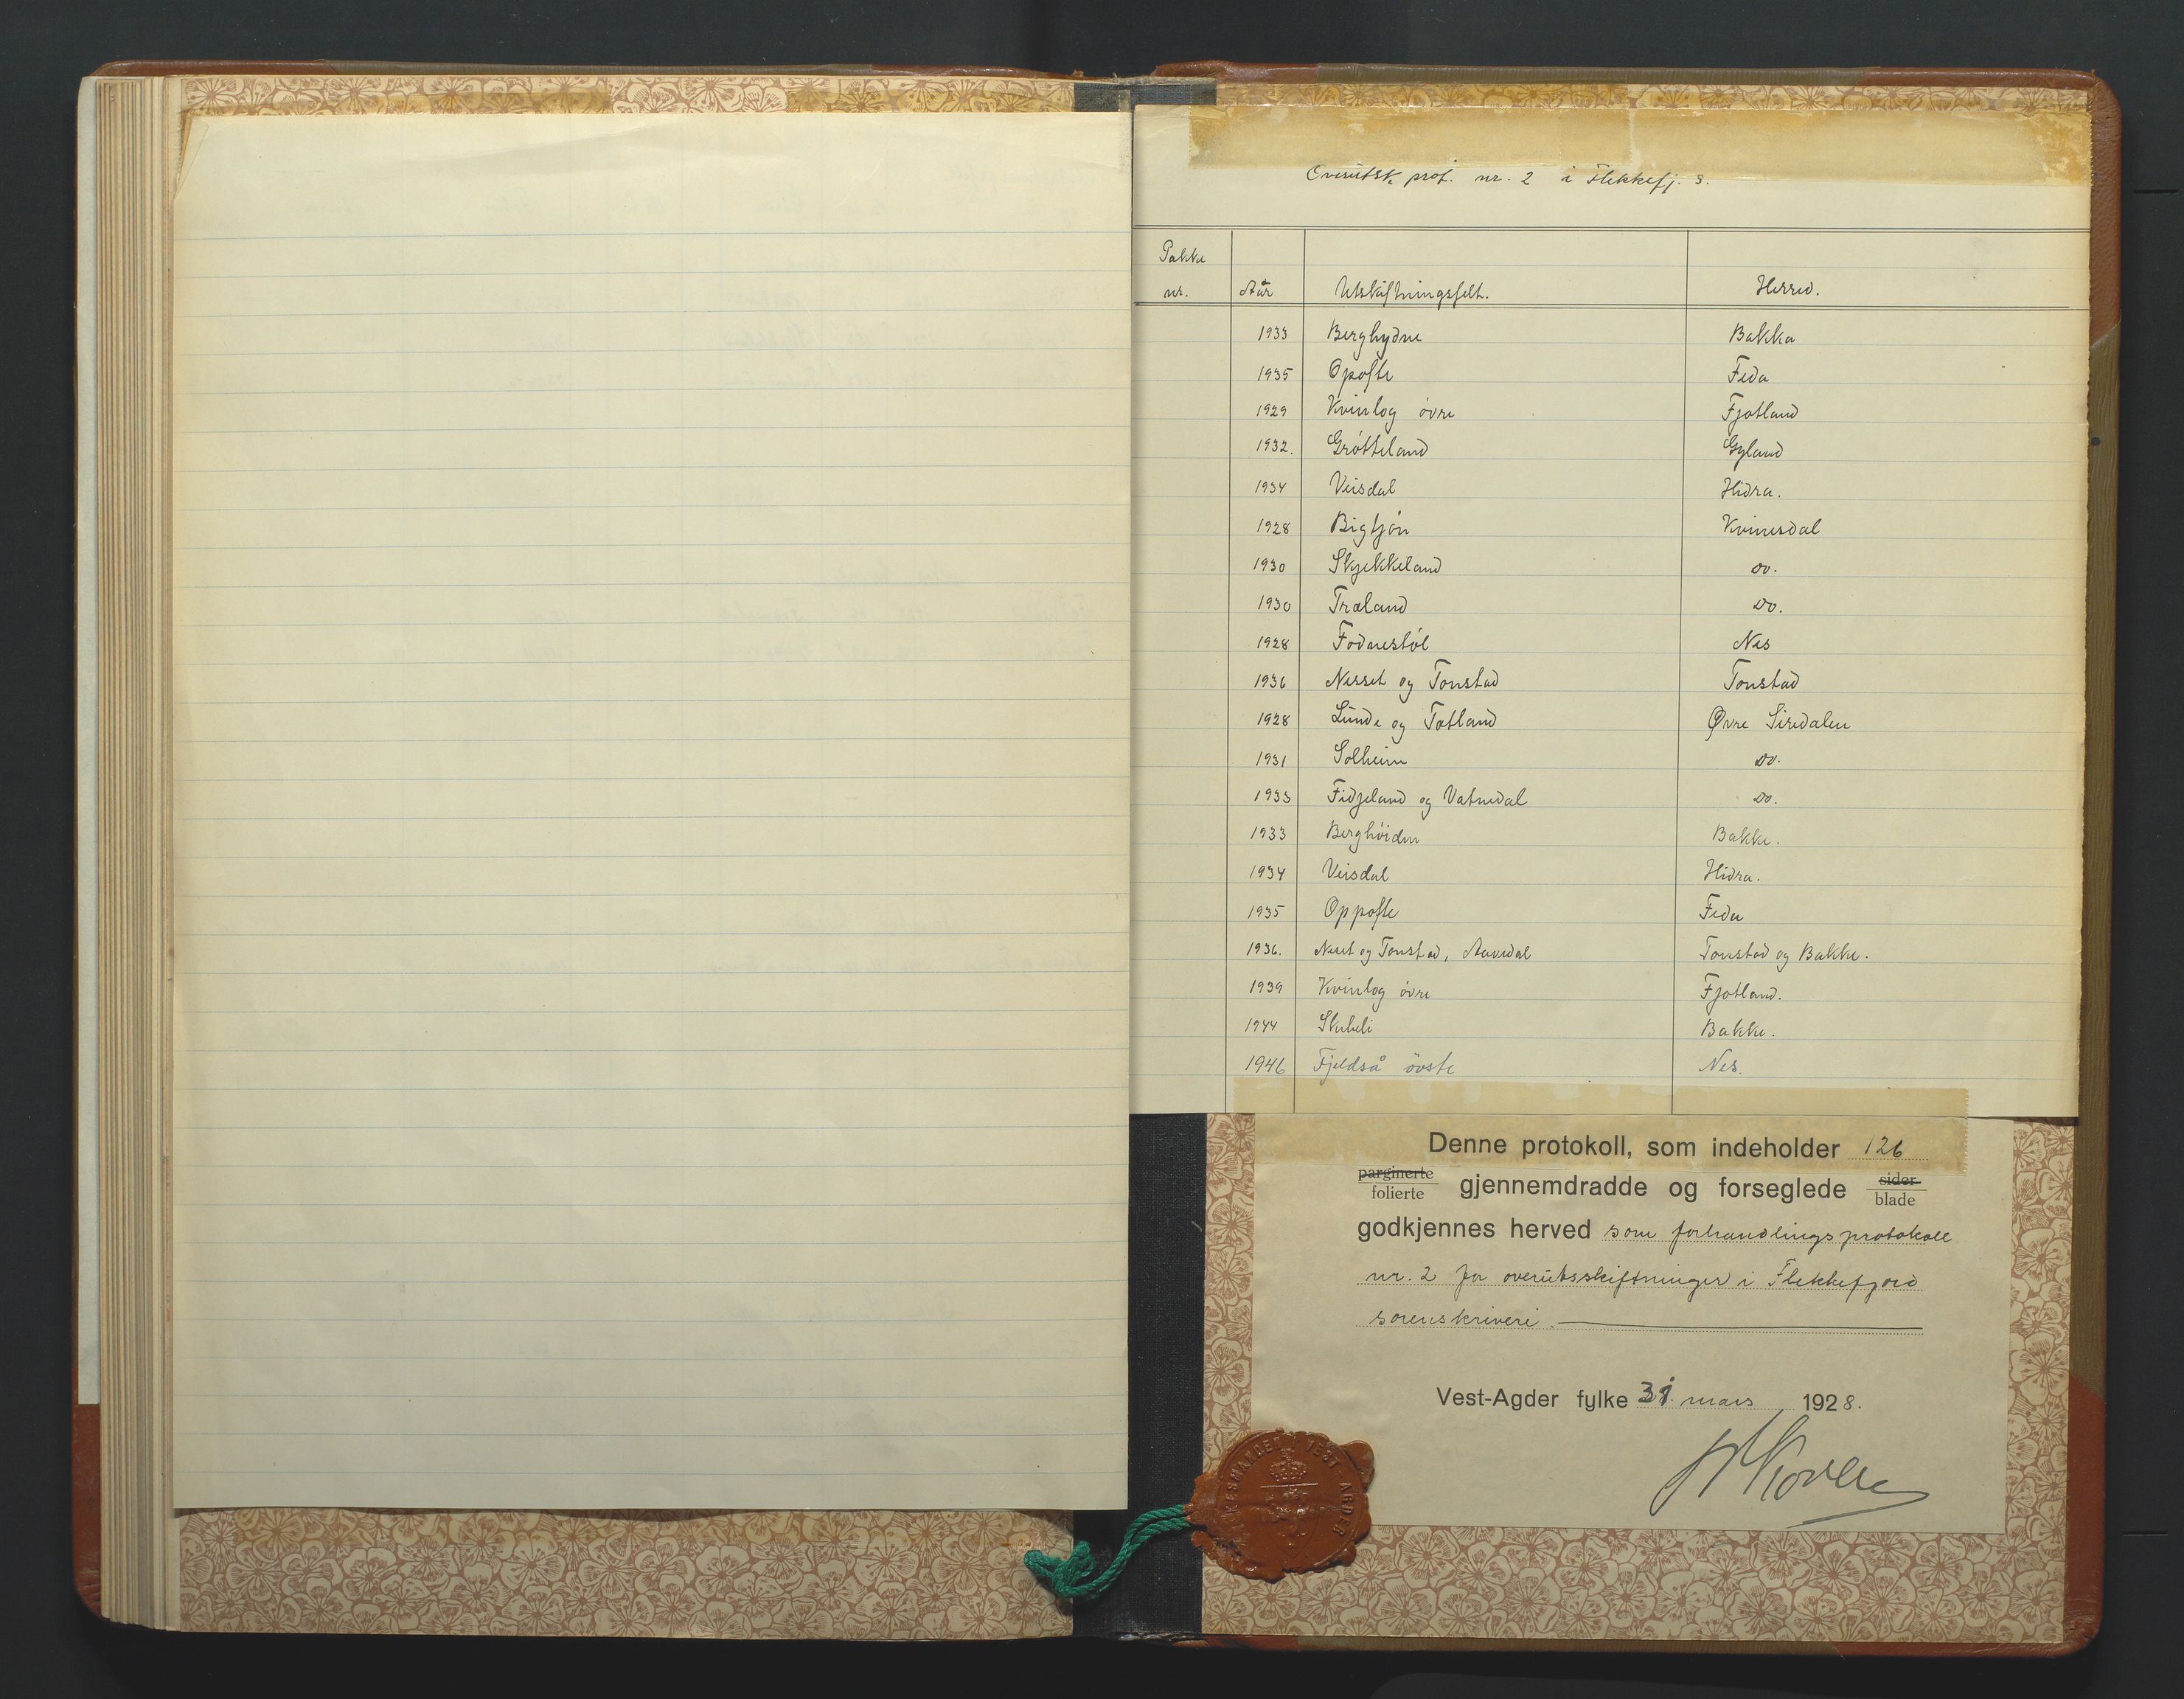 Overutsk. prot. nr. 2 i Flekkefj. s.
Pakke
nr. År Utskiftningsfelt. Herred.
1933 Berghydne Bakka
1935 Opofte Feda
1929 Kvinlog øvre Fjotland
1932. Grøtteland Gyland
1934 Veisdal Hidra.
1928 Bigtjøn Kvinesdal
1930 Skjekkeland do.
1930 Træland do.
1928 Fodnestøl Nes
1936 Nesset og Tonstad Tonstad
1928 Lunde og Totland Øvre Siredalen
1931 Solheim do.
1933 Fidjeland og Vatnedal do.
1933 Berghøiden Bakke.
1934 Veisdal Hidra.
1935 Oppofte Feda
1936. Neset og Tonstad, Aavedal Tonstad og Bakke.
1939 Kvinlog øvre Fjotland.
1944 Skibeli Bakke.
1946 Fjeldså øvste Nes.
Denne protokoll, som indeholder 126
parginerte sider
folierte gjennemdradde og forseglede blade
godkjennes herved som forhandlingsprotokoll
nr. 2 for overutsskiftninger i Flekkefjord
sorenskriveri.
Vest-Agder fylke 31. mars 1928.